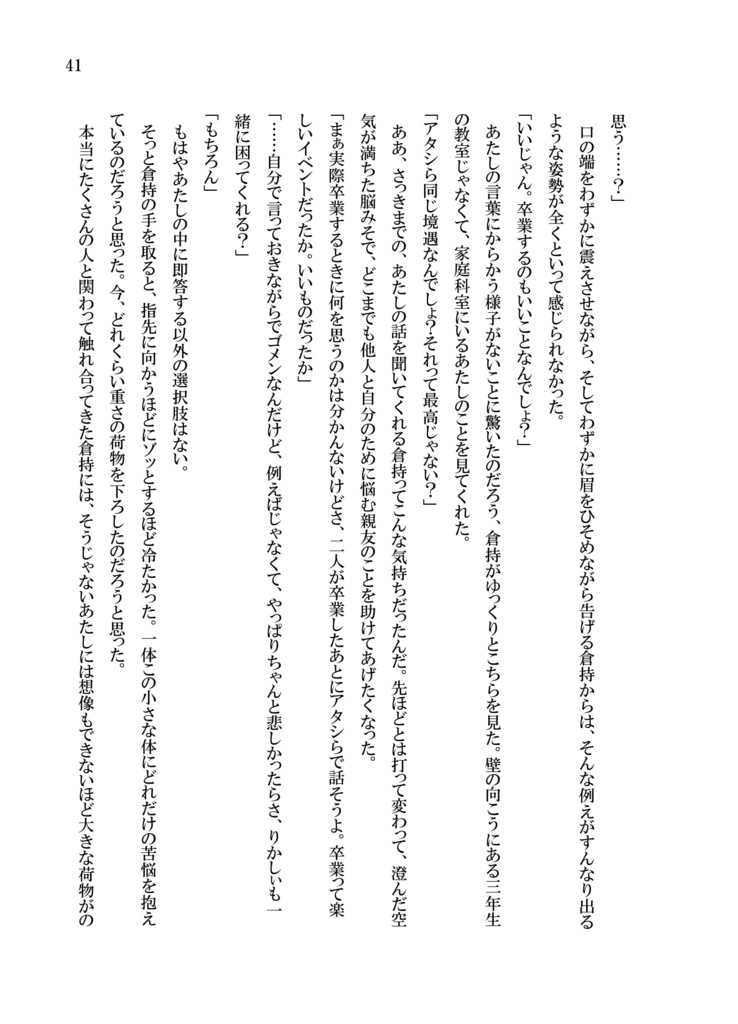 41
思う……？」
口の端をわずかに震えさせながら、そしてわずかに眉をひそめながら告げる倉持からは、そんな例えがすんなり出る
ような姿勢が全くといって感じられなかった。
「いいじゃん。卒業するのもいいことなんでしょ？」
あたしの言葉にからかう様子がないことに驚いたのだろう、倉持がゆっくりとこちらを見た。壁の向こうにある三年生
の教室じゃなくて、家庭科室にいるあたしのことを見てくれた。
「アタシら同じ境遇なんでしょ？それって最高じゃない？」
ああ、さっきまでの、あたしの話を聞いてくれる倉持ってこんな気持ちだったんだ。先ほどとは打って変わって、澄んだ空
気が満ちた脳みそで、どこまでも他人と自分のために悩む親友のことを助けてあげたくなった。
「まぁ実際卒業するときに何を思うのかは分かんないけどさ、二人が卒業したあとにアタシらで話そうよ。卒業って楽
しいイベントだったか。いいものだったか」
「……自分で言っておきながらでゴメンなんだけど、例えばじゃなくて、やっぱりちゃんと悲しかったらさ、りかしぃも一
緒に困ってくれる？」
「もちろん」
もはやあたしの中に即答する以外の選択肢はない。
そっと倉持の手を取ると、指先に向かうほどにゾッとするほど冷たかった。一体この小さな体にどれだけの苦悩を抱え
ているのだろうと思った。今、どれくらい重さの荷物を下ろしたのだろうと思った。
本当にたくさんの人と関わって触れ合ってきた倉持には、そうじゃないあたしには想像もできないほど大きな荷物がの